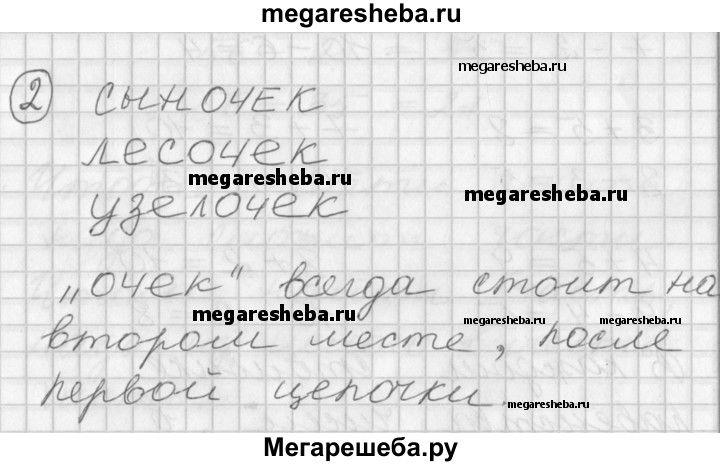 megaresheba.ru
megaresheba.ru
2 сыночек
лесочек
megaresheba.ru
megaresheba.ru
узелочек
„очек" всегда стоит на
megaresheba.ru
megaresheba.ru
втором месте, после
первой цепочки
megaresheba.ru
Мегарешеба.ру